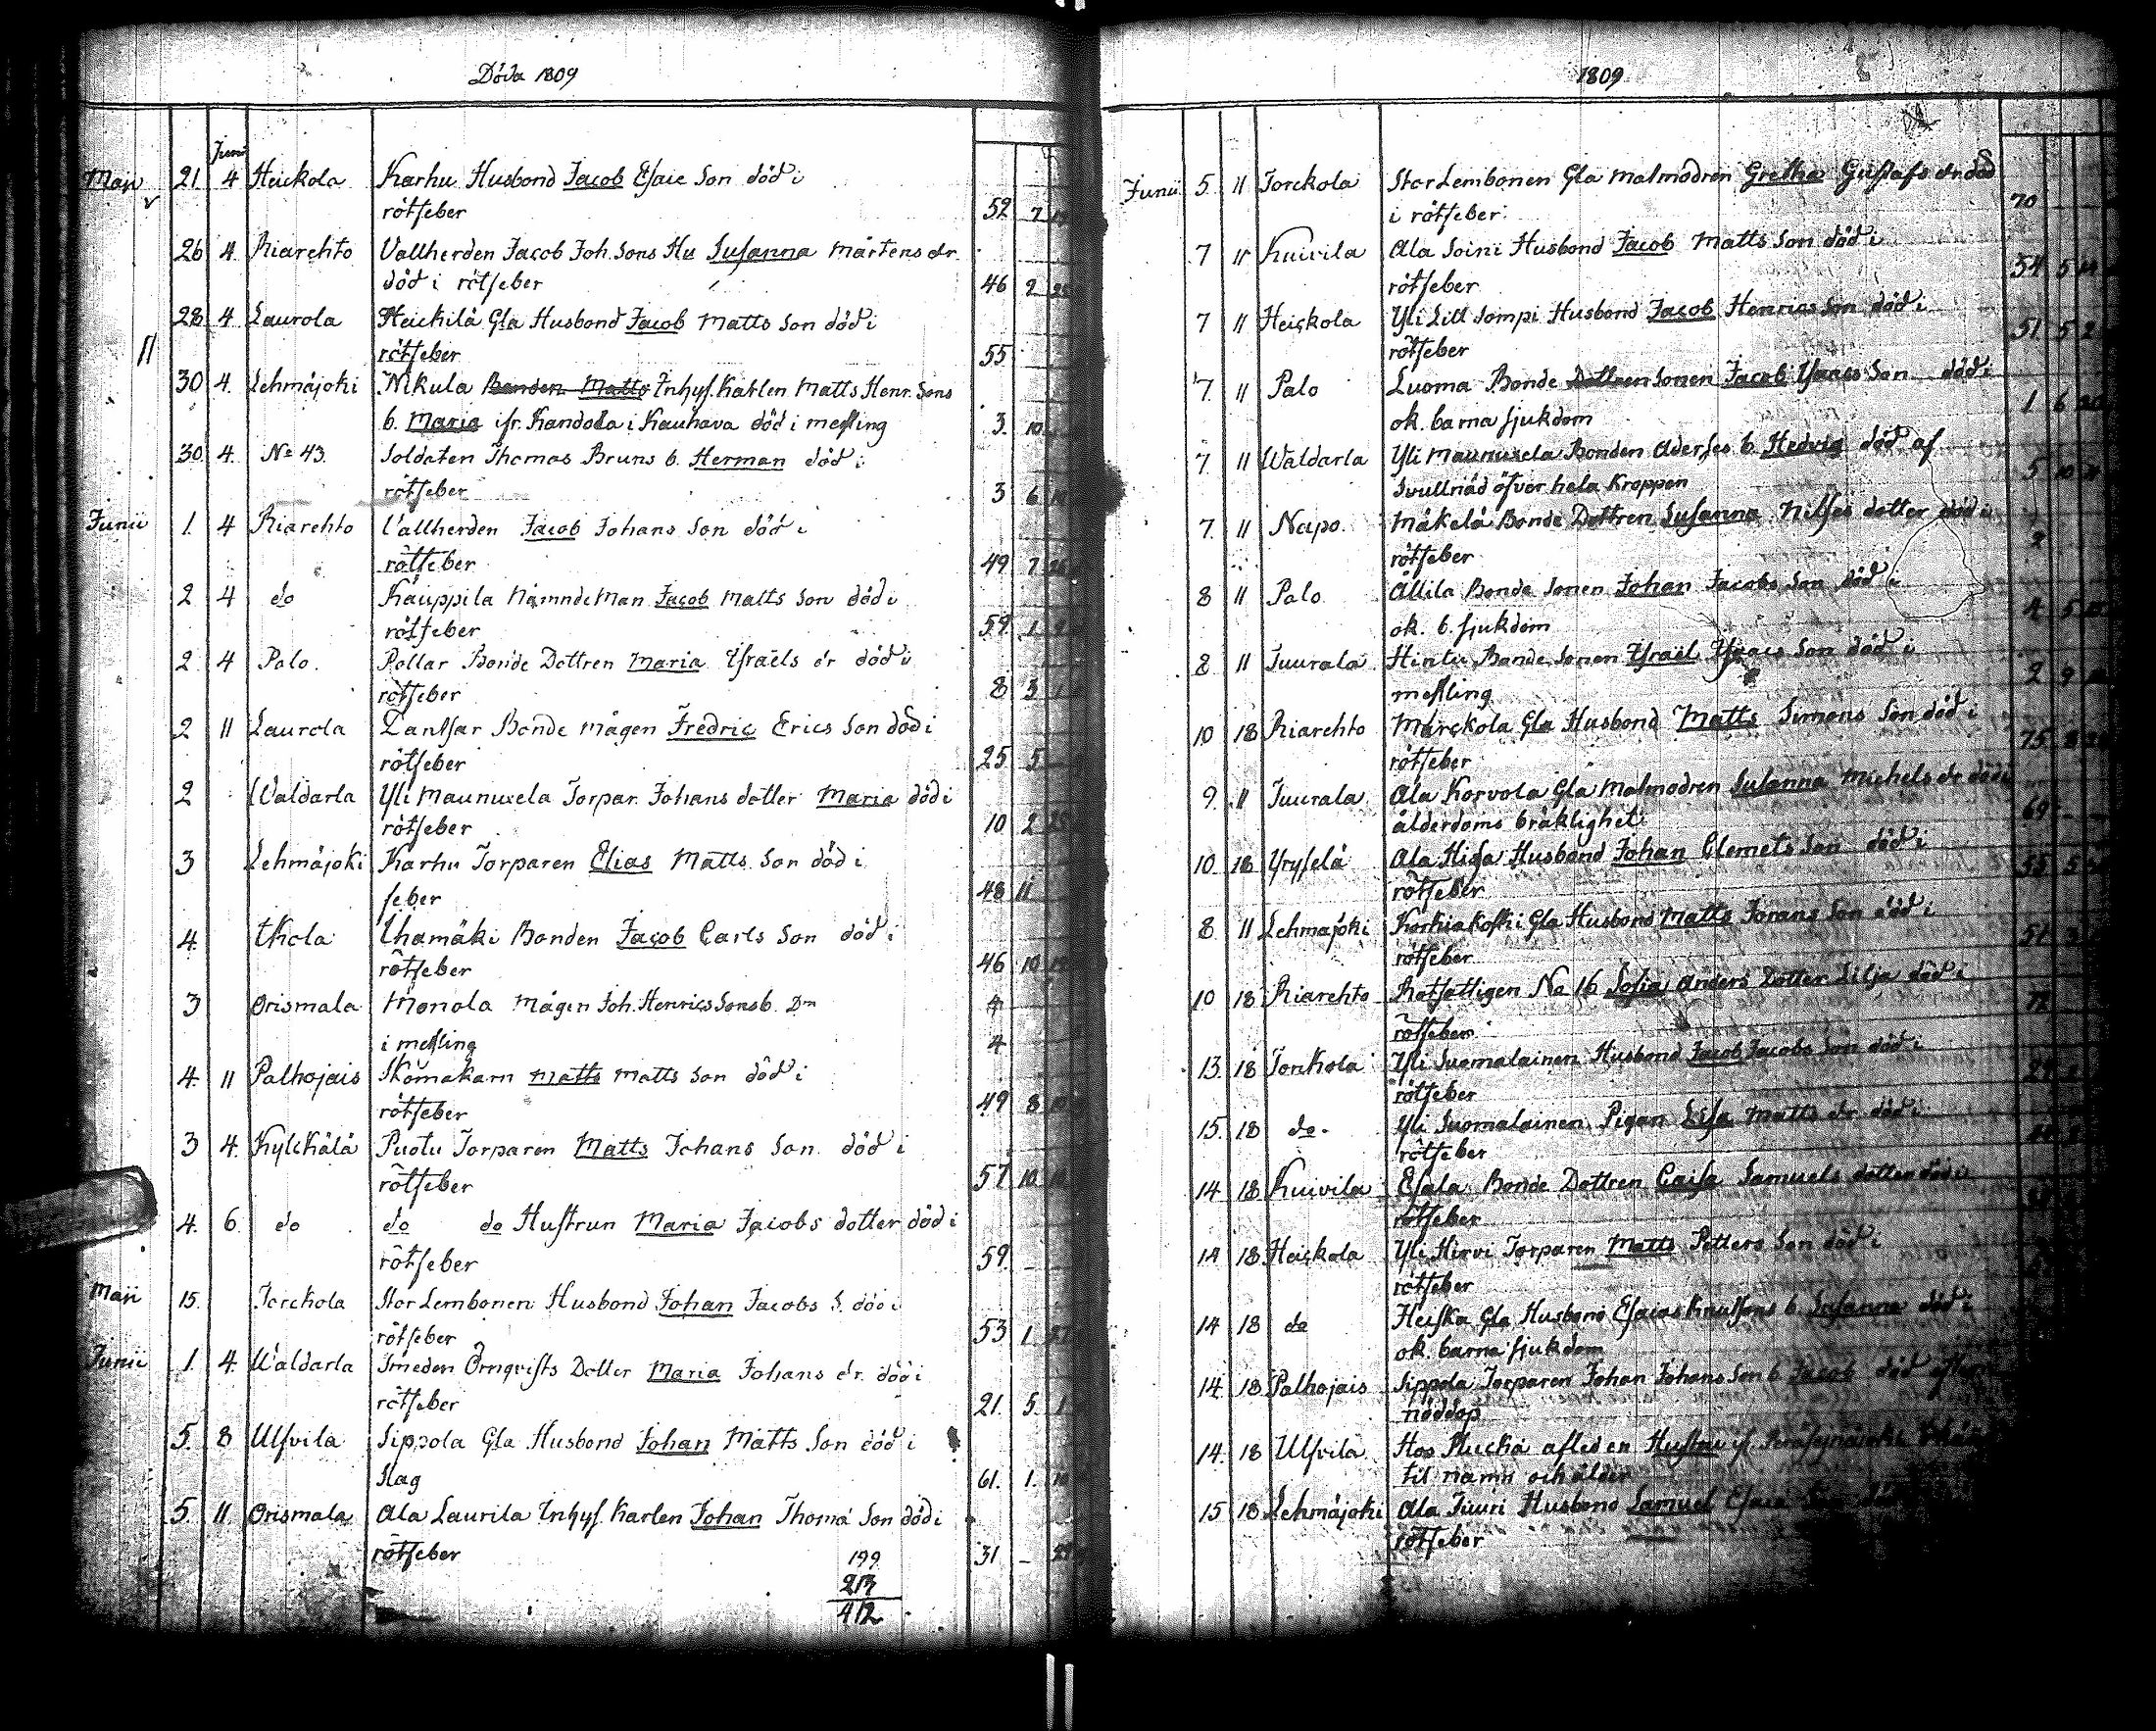 Döda 1809
Junii
Maji 21 4 Heickola Karhu Husbond Jacob Esaie Son död i
rötfeber 52 7
26 4 Riarehto Vallherden Jacob Joh. Sons Hu Susanna Mårtens dr
död i rötfeber 46 2
28 4 Laurola Heickilä Gla Husbond Jacob Matts Son död i
rötfeber 55
30 4. Lehmäjoki Nikula Bonden Matts Inhys. Karlen Matts Henr. Sons
b. Maria ifr. Kandola i Kauhava död i messling 3. 10
30. 4. No 43. Soldaten Thomas Bruns b. Herman död i
rötfeber 3 6
Junii 1. 4 Riarehto Vallherden Jacob Johans Son död i
rötfeber 49 7
2 4 do Käuppila Nämndeman Jacob Matts Son död i
rötfeber 59. 1
2. 4 Palo. Pollar Bonde Dottren Maria Israëls dr död i
rötfeber 8 3
2 11 Laurola Lantsar Bonde mågen Fredric Erics Son död i
rötfeber 25 5
2 Waldarla Yli Maunuxela Torpar. Johans dotter Maria död i
rötfeber 10 2 25
3 Lehmäjoki Karhu Torparen Elias Matts Son död i
feber 48 11
4. Ikola Uhamäki Bonden Jacob Carls Son död i
rötfeber 46 10
3 Orismala Monola Mågen Joh. Henrics Sons b. Dn 4
i messling 4
4. 11 Palhojais Skomakarn Matts Matts Son död i
rötfeber 49 8
3 4. Kylckälä Puotu Torparen Matts Johans Son död i
rötfeber 57 10.
4. 6. do do do Hustrun Maria Jacobs dotter död i
rötfeber 59.
Maji 15. Torckola Stor Lembonen Husbond Johan Jacobs S. död i
rötfeber 53 1 27
Junii 1. 4. Waldarla Smeden Örnqvists Dotter Maria Johans dr. död i
rötfeber 21. 5. 1
5. 8 Ulfvila Sippola Gla Husbond Johan Matts Son död i
Slag 61. 1. 10
5. 11 Orismala Ala Laurila Inhys. Karlen Johan Thomä Son död i
rötfeber 31 –
199
213
412
1809
Junii 5 11 Torckola Stor Lembonen Gla Malmodren Gretha Gustafs dr död
i rötfeber. 70
7 11 Kuivila Ala Soini Husbond Jacob Matts Son död i
rötfeber 54 5
7 11 Heickola Yli Lill Sompi Husbond Jacob Henrics Son död i
rötfeber 51. 5 2
7. 11 Palo Luoma Bonde Dottren Sonen Jacob Isaacs Son död i
ok. barna sjukdom 1 6
7. 11 Waldarla Yli Maunuxela Bonden b. Hedvig död af
Svullnad öfver hela Kroppen 5 10
7. 11 Napo. Mäkelä Bonde Dottren Susanna Nilses dotter död i
rötfeber 2
8 11 Palo Ållila Bonde Sonen Johan Jacobs Son död i
ok. b. sjukdom 4 5
8 11 Tuurala Hintu Bonde Sonen Israel Isaacs Son död i
messling 2 9
10 18 Riarehto Märckola Gla Husbond Matts Simons Son död i
rötfeber 75 8
9. 11 Tuurala Ala Korvola Gla Malmodren Susanna Michels dr död i
ålderdoms bräklighet 69
10. 18 Yrysselä Ala Hisa Husbond Johan Clemets Son död i
rötfeber 55 5
8 11 Lehmäjoki Korkiakoski Gla Husbond Matts Jorans Son död i
rötfeber 51 3
10 18 Riarehto Rotfattigen No 16 Sofia Anders Dotter Lilja död i
rötfeber
13. 18 Torckola Yli Suomalainen Husbond Jacob Jacobs Son död i
rötfeber
15. 18 do. Yli Suomalainen Pigan Lisa Matts dr död i
rötfeber
14 18 Kuivila Esala Bonde Dottren Caisa Samuels dotter död i
rötfeber
14 18 Heickola Yli Hirvi Torparen Matts Petters Son död i
rötfeber
14 18 do Heiska Gla Husbond Esaias Knutsons b. Susanna död i
ok. barna sjukdom
14. 18 Palhojais Sippola Torparen Johan Johans Son b. Jacob död efter
nöddop
14. 18 Ulfvila Hos afled en Hustru
til namn och ålder
15 18 Lehmäjoki Ala Tuuri Husbond Samuel Esaie Son
rötfeber